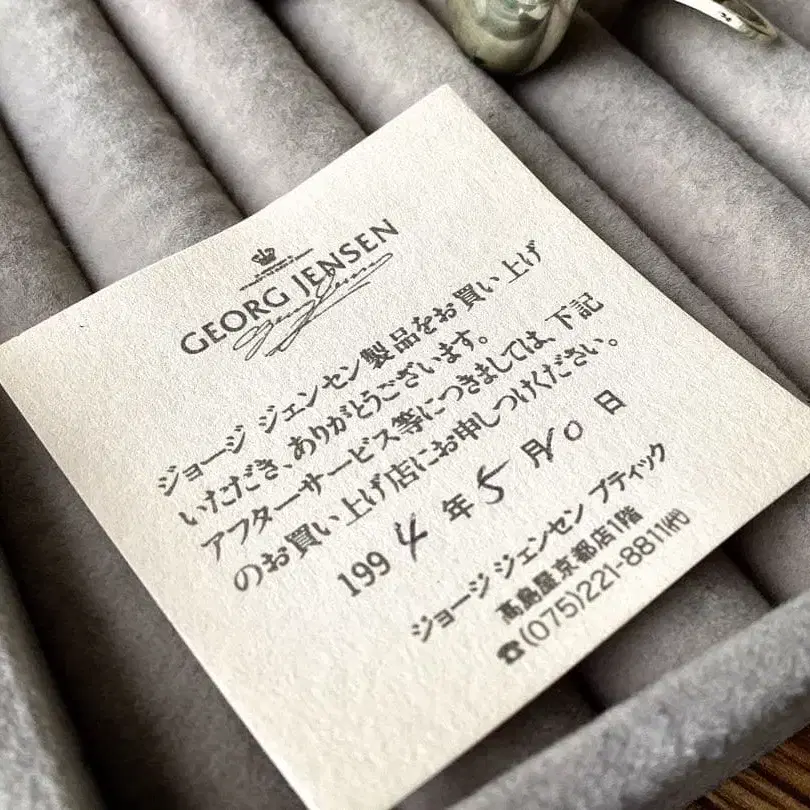 GEORG JENSEN
ジョージ ジェンセン製品をお買い上げ
いただき、ありがとうございます。
アフターサービス等につきましては、下記
のお買い上げ店にお申しつけください。
1994年5月10日
ジョージ ジェンセン ブティック
髙島屋京都店1階
☎(075)221-8811㈹